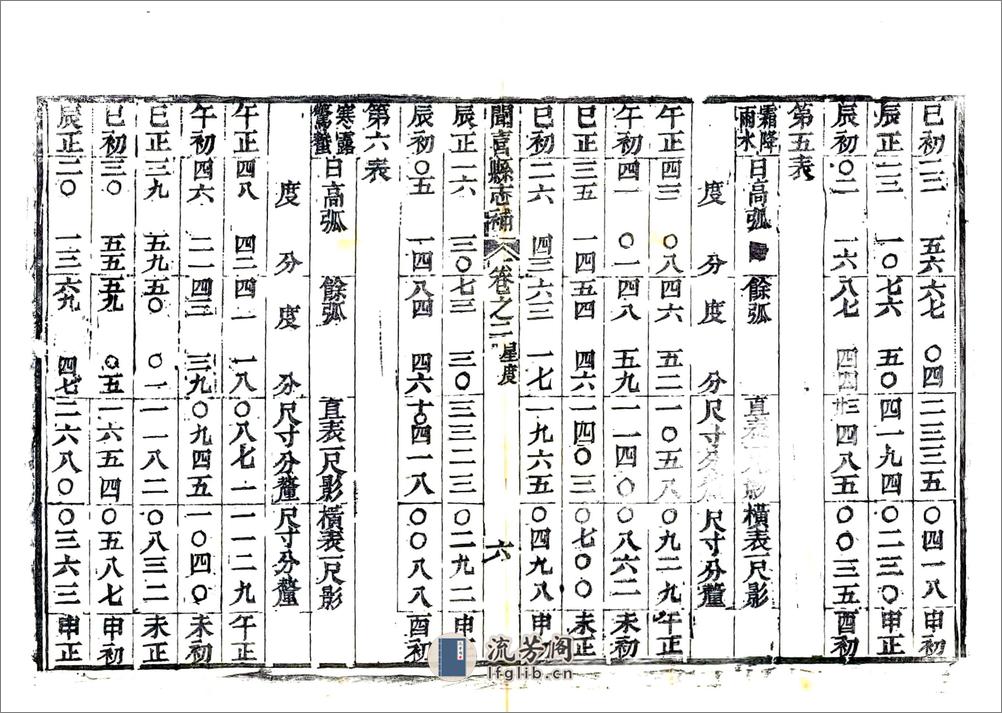 巳初二二五六六七〇四二三三五〇四一八申初
辰正一三一〇七六五〇四一九四〇二三〇申正
辰初〇二一六八七四四廿三四八五〇〇三五酉初
第五表
霜降雨水日高弧餘弧直表一尺影橫表一尺影
度分度分尺寸分釐尺寸分釐
午正四三〇八四六五二一〇五八〇九二九午正
午初四一〇一四八五九一一四〇〇八六二未初
巳正三五一四五四四六一四〇三〇七〇〇未正
巳初二六四三六三一七一九六五〇四九八申初
聞喜縣志補卷之二星度六
辰正一六三〇七三三〇三三二三〇二九二申正
辰初〇五一四八四四六十〇四一八〇〇八八酉初
第六表
寒露驚蟄日高弧餘弧直表一尺影橫表一尺影
度分度分尺寸分釐尺寸分釐
午正四八四二四一一八〇八七一一一二九午正
午初四六二一四三三九〇九四五一〇四〇未初
巳正三九五九五〇〇一一一八二〇八三二未正
巳初三〇五五五九〇五一六五四〇五八七申初
辰正二〇一三六九四七二六八〇〇三六三申正
流芳阁
lfglib.cn